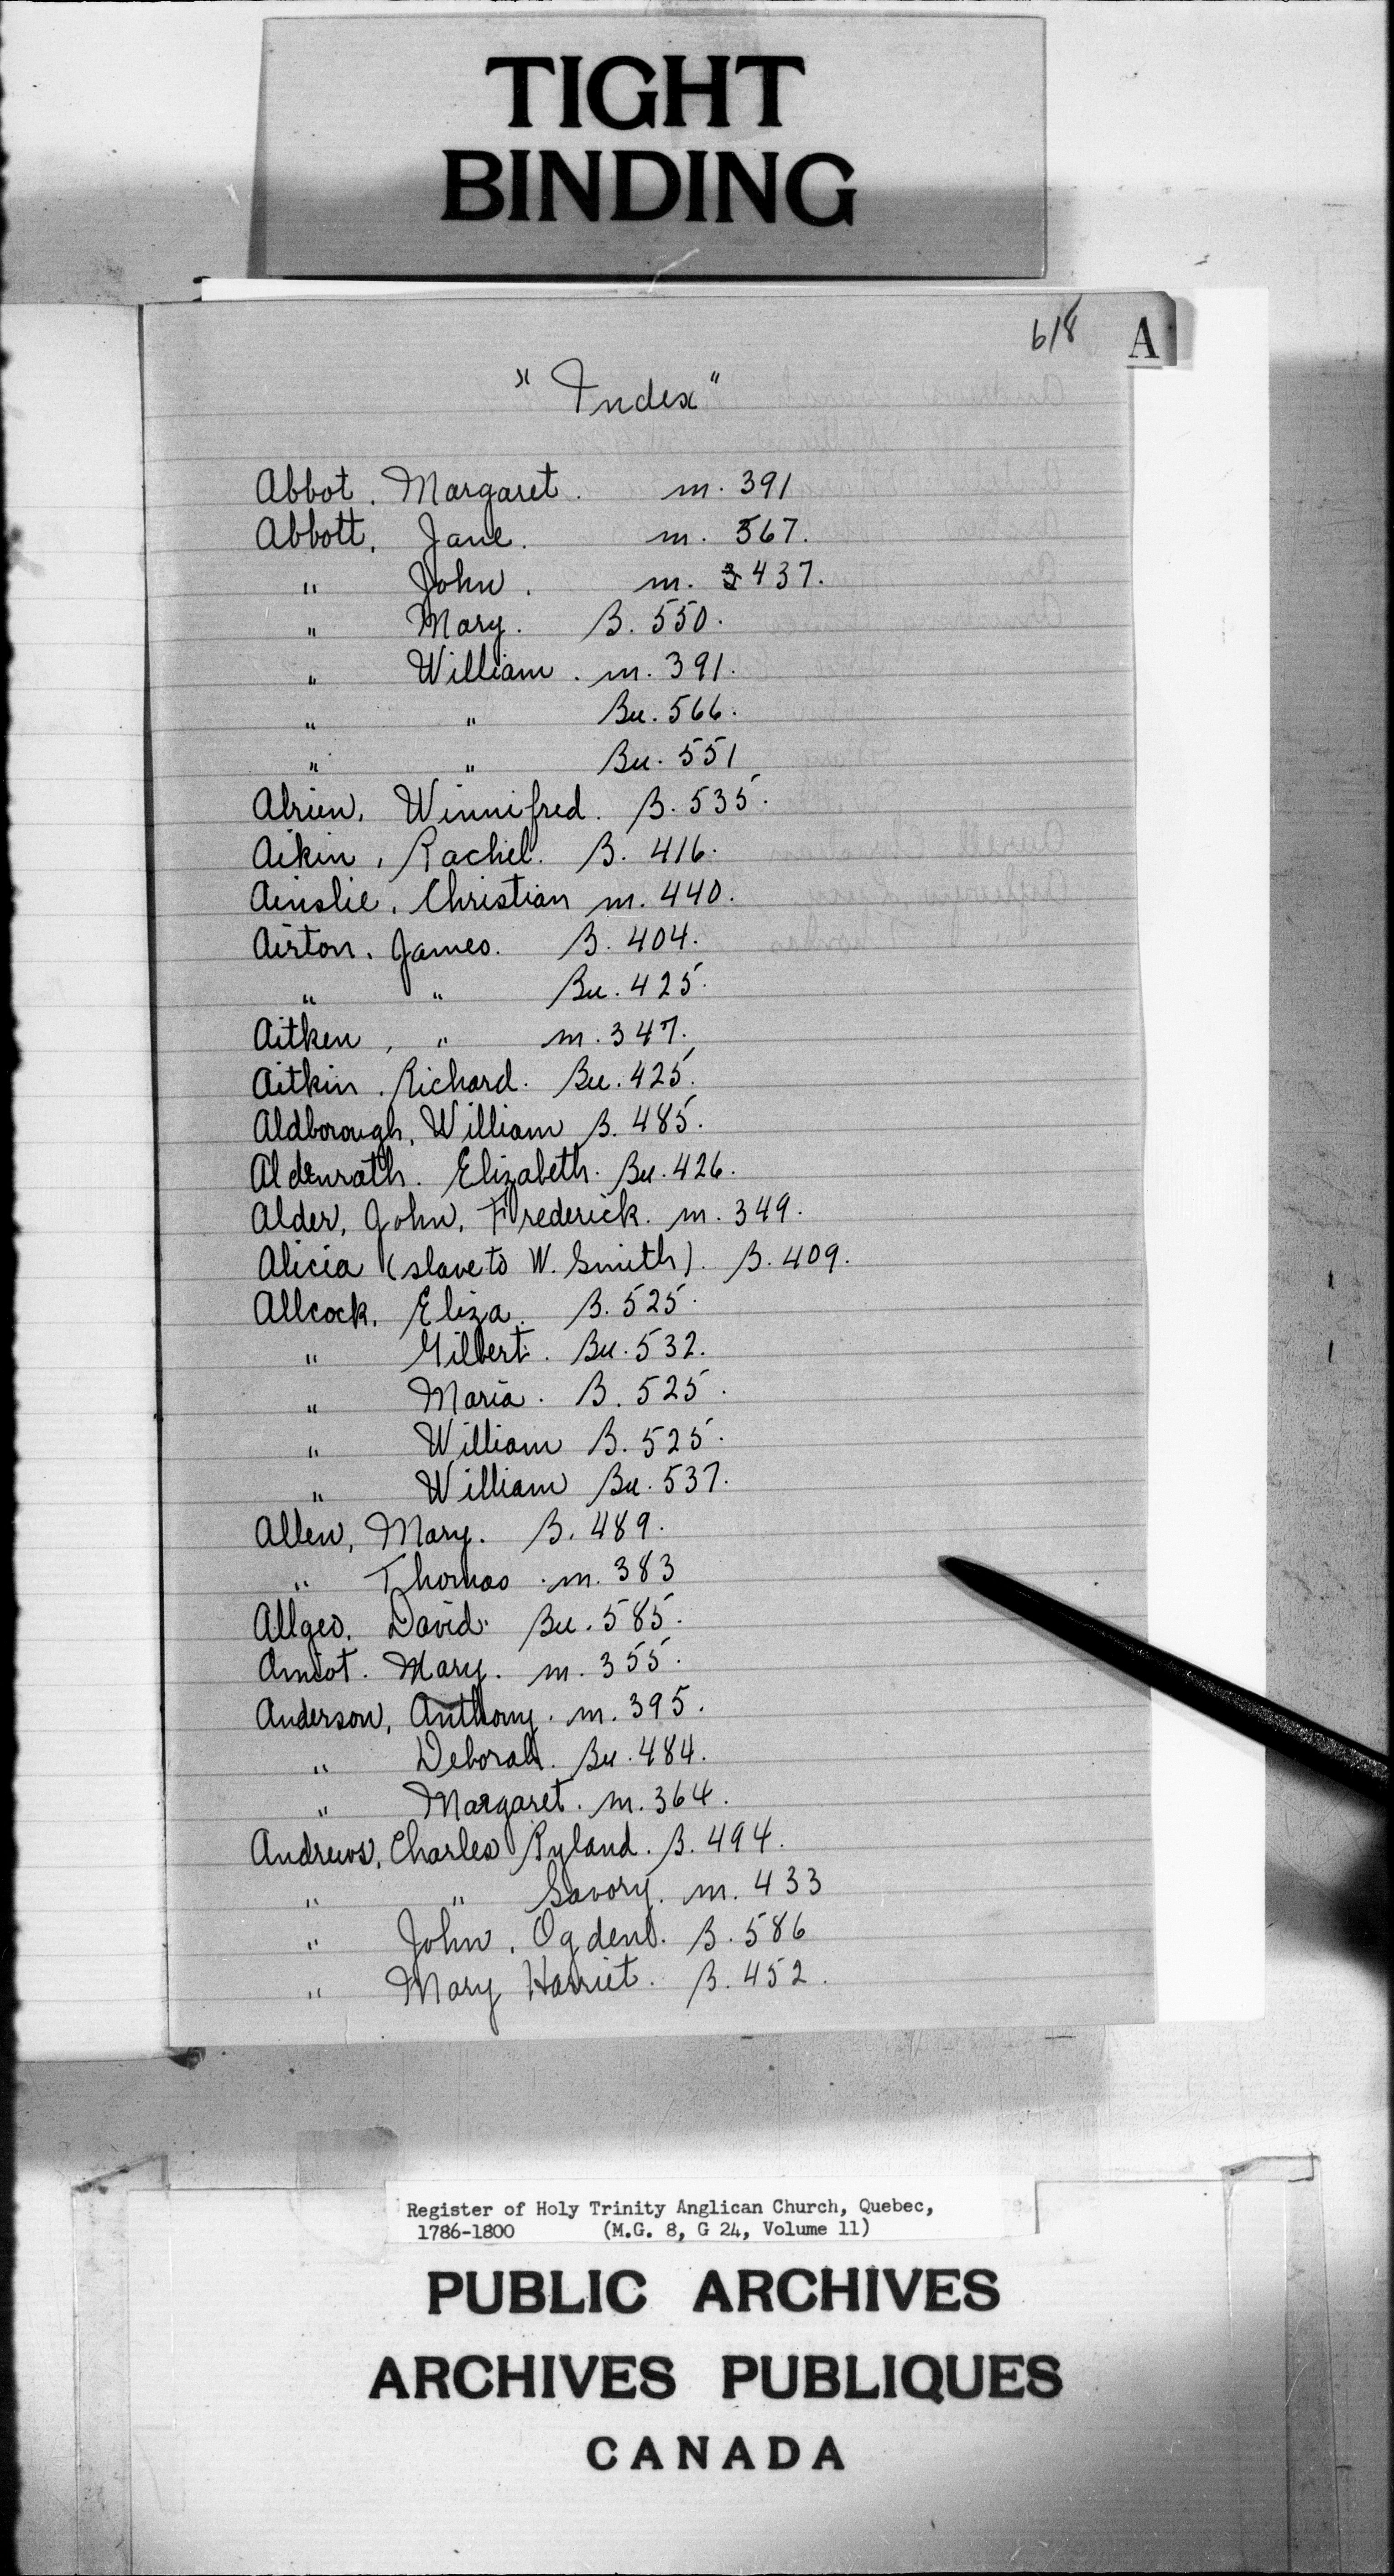 TIGHT
BINDING
618 A
"Index"
Abbot. Margaret. m. 391
Abbott, Jane. m. 567.
" John. m. 437.
" Mary. B. 550.
" William. m. 391.
" " Bu. 566.
" " Bu. 551
Abrien, Winnifred. B. 535.
Aikin, Rachel. B. 416.
Ainslie, Christian m. 440.
Airton. James. B. 404.
" " Bu. 425.
Aitken, " m. 347.
Aitkin. Richard. Bu. 425.
Aldborough, William B. 485.
Aldenrath. Elizabeth. Bu. 426.
Alder, John, Frederick. m. 349.
Alicia (slave to W. Smith). B. 409.
Allcock, Eliza. B. 525.
" Gilbert. Bu. 532.
" Maria. B. 525.
" William B. 525.
" William Bu. 537.
Allen, Mary. B. 489.
" Thomas. m. 383
Allgeo. David. Bu. 585.
Amiot. Mary. m. 355.
Anderson, Anthony. m. 395.
" Deborah. Bu. 484.
" Margaret. m. 364.
Andrews, Charles Ryland. B. 494.
" " Savory. m. 433
" John, Ogden. B. 586
" Mary Harriet. B. 452.
Register of Holy Trinity Anglican Church, Quebec,
1786-1800 (M.G. 8, G 24, Volume 11)
PUBLIC ARCHIVES
ARCHIVES PUBLIQUES
CANADA